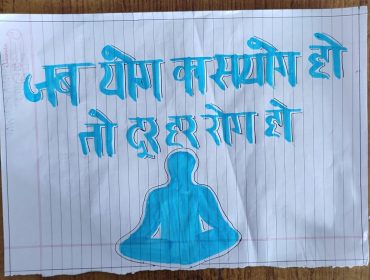 जब योग का सयोग हो
तो दूर हर रोग हो